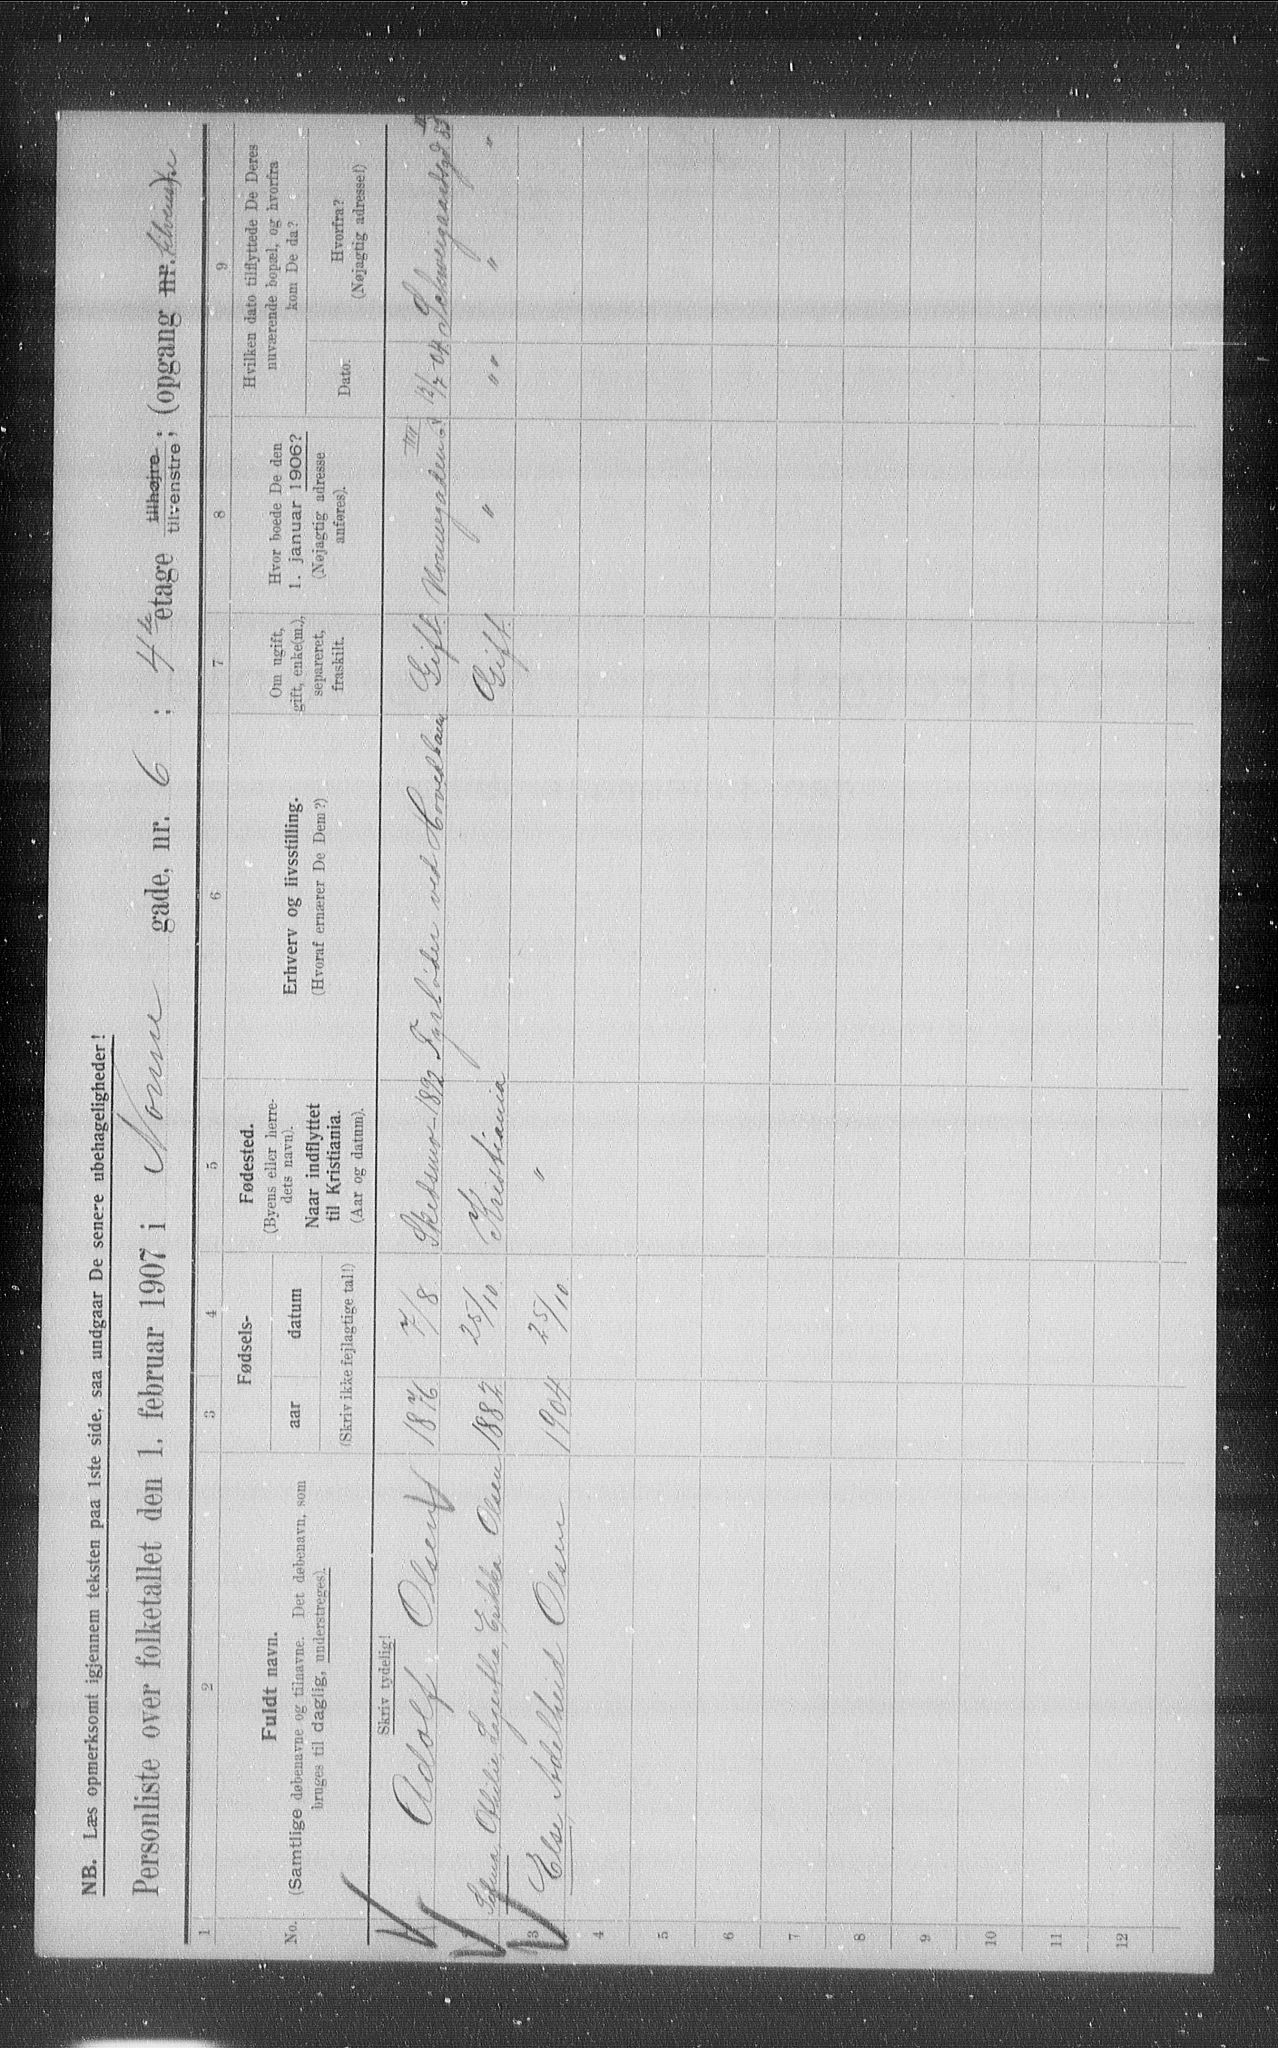 NB. Læs opmerksomt igjennem teksten paa 1ste side, saa undgaar De senere ubehageligheder!
Personliste over folketallet den 1. februar 1907 i Nonne gade, nr. 6 ; 4de etage tilhøjre tilvenstre; (opgang nr. tilvenstre)
1 2 3 4 5 6 7 8 9
No.
Fuldt navn.
(Samtlige døbenavne og tilnavne. Det døbenavn, som
bruges til daglig, understreges).
Fødsels-
aar datum
(Skriv ikke fejlagtige tal!)
Fødested.
(Byens eller herre-
dets navn).
Naar indflyttet
til Kristiania.
(Aar og datum).
Erhverv og livsstilling.
(Hvoraf ernærer De Dem?)
Om ugift,
gift, enke(m.),
separeret,
fraskilt.
Hvor boede De den
1. januar 1906?
(Nøjagtig adresse
anføres).
Hvilken dato tilflyttede De Deres
nuværende bopæl, og hvorfra
kom De da?
Dato.
Hvorfra?
(Nøjagtig adresse!)
Skriv tydelig!
Adolf Olsen 1876 7/8 Skedsmo-1892 Fyrbøder ved Hovedbanen Gift Nonnegaden 6 IIII 12/7-04 Schweigaardsgd 53 III
Othilie, Lagertha, Erikka Olsen 1882 25/10 Kristiania Gift " " " " "
3 Else Adelheid Olsen 1904 25/10 "
4
5
6
7
8
9
10
11
12